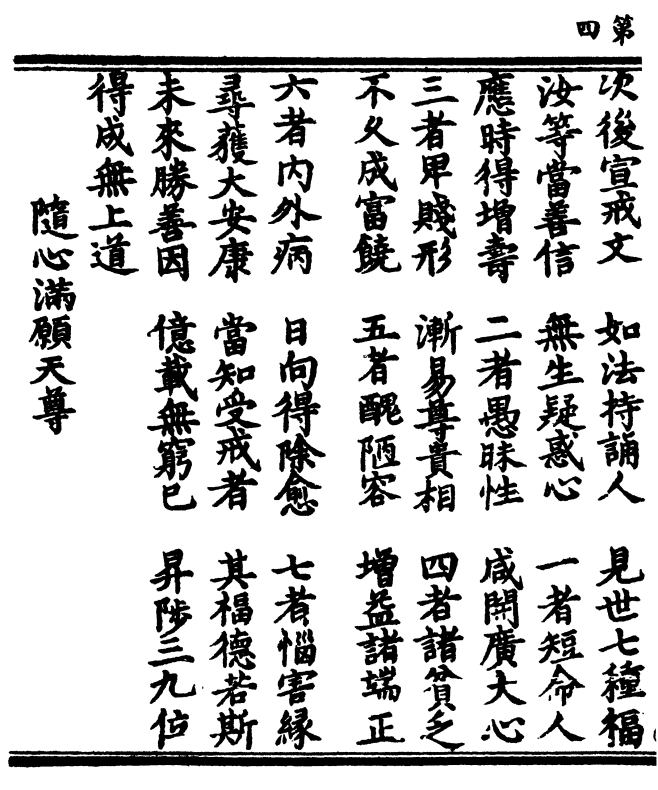 第四
次後宣戒文　如法持誦人　見世七種福
汝等當善信　無生疑惑心　一者短命人
應時得增壽　二者愚昧性　咸開廣大心
三者卑賤形　漸易尊貴相　四者諸貧乏
不久成富饒　五者醜陋容　增益諸端正
六者內外病　日向得除愈　七者惱害緣
尋獲大安康　當知受戒者　其福德若斯
未來勝善因　億載無窮已　昇陟三九位
得成無上道
隨心滿願天尊